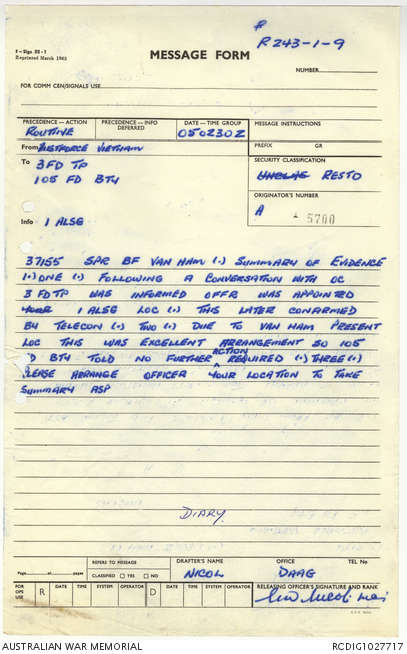 R243-1-9
F-Sigs 52-1
Reprinted March 1965
MESSAGE FORM
NUMBER
FOR COMM CEN/SIGNALS USE
PRECEDENCE—ACTION
ROUTINE
PRECEDENCE—INFO
DEFERRED
DATE—TIME GROUP
050230Z
MESSAGE INSTRUCTIONS
From AUSTFORCE VIETNAM
PREFIX GR
To 3 FD TP
105 FD BTY
SECURITY CLASSIFICATION
UNCLAS RESTD
ORIGINATOR'S NUMBER
A 5700
Info 1 ALSG
37155 SPR BF VAN HAM (.) SUMMARY OF EVIDENCE
(.) ONE (.) FOLLOWING A CONVERSATION WITH OC
3 FD TP WAS INFORMED OFFR WAS APPOINTED
YOUR 1 ALSG LOC (.) THIS LATER CONFIRMED
BY TELECON (.) TWO (.) DUE TO VAN HAM PRESENT
LOC THIS WAS EXCELLENT ARRANGEMENT SO 105
D BTY TOLD NO FURTHER ACTION REQUIRED (.) THREE (.)
PLEASE ARRANGE OFFICER YOUR LOCATION TO TAKE
SUMMARY ASP
DIARY.
Page of pages
REFERS TO MESSAGE
CLASSIFIED YES NO
DRAFTER'S NAME
NICOL
OFFICE
DAAG
TEL No
FOR OPS USE
R DATE TIME SYSTEM OPERATOR
D DATE TIME SYSTEM OPERATOR
RELEASING OFFICER'S SIGNATURE AND RANK
AUSTRALIAN WAR MEMORIAL
RCDIG1027717